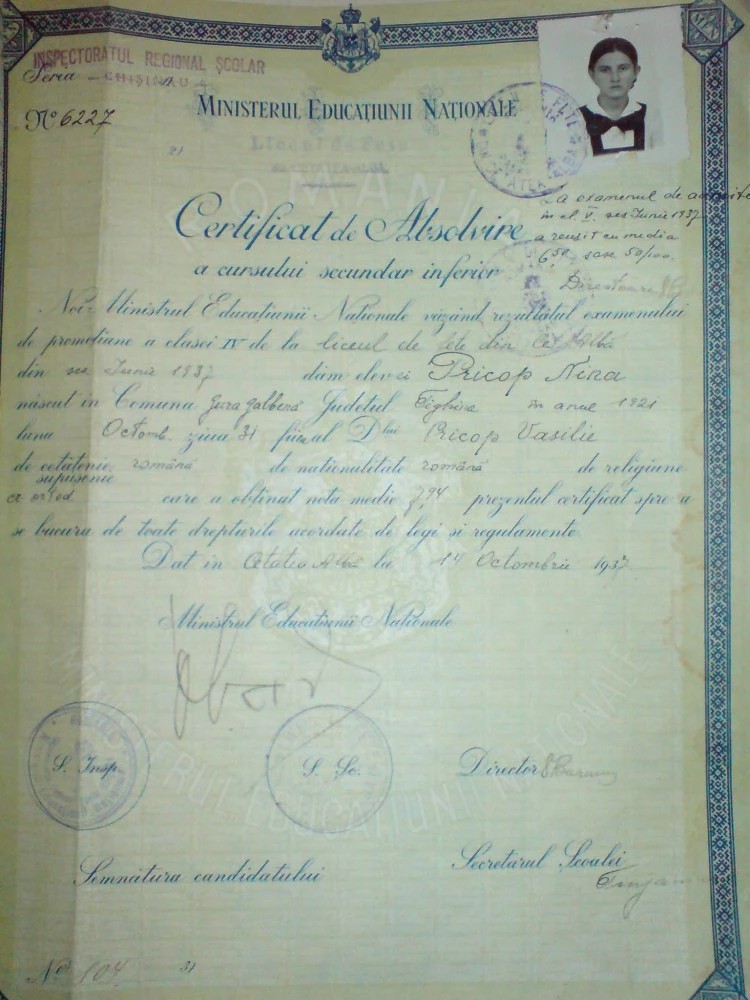 INSPECTORATUL REGIONAL ȘCOLAR
Seria – CHIȘINĂU
Nº 6227
MINISTERUL EDUCAȚIUNII NAȚIONALE
Liceul de Fete
21
ROMANIA
La examenul de admitere
în cl. V. ses Iunie 1937
a reușit cu media
6,50 șase 50/100.
Certificat de Absolvire
a cursului secundar inferior
Noi Ministrul Educațiunii Naționale văzând rezultatul examenului
de promoțiune a clasei IV de la liceul de fete din Cet. Albă
din ses Iunie 1937 dăm elevei Pricop Nina
născut în Comuna Gura galbenă Județul Tighina în anul 1921
luna Octomb. ziua 31 fiica al Dlui Pricop Vasilie
de cetățenie română de naționalitate română de religiune
supușenie
cr. ortod. care a obținut nota medie 7,94 prezentul certificat spre a
se bucura de toate drepturile acordate de legi și regulamente
Dat în Cetatea Albă la 14 Octombrie 1937
Ministrul Educațiunii Naționale
MINISTERUL EDUCAȚIUNII NAȚIONALE
S. Insp. S. Sc. Director
Semnătura candidatului Secretarul Școalei
No. 104 31